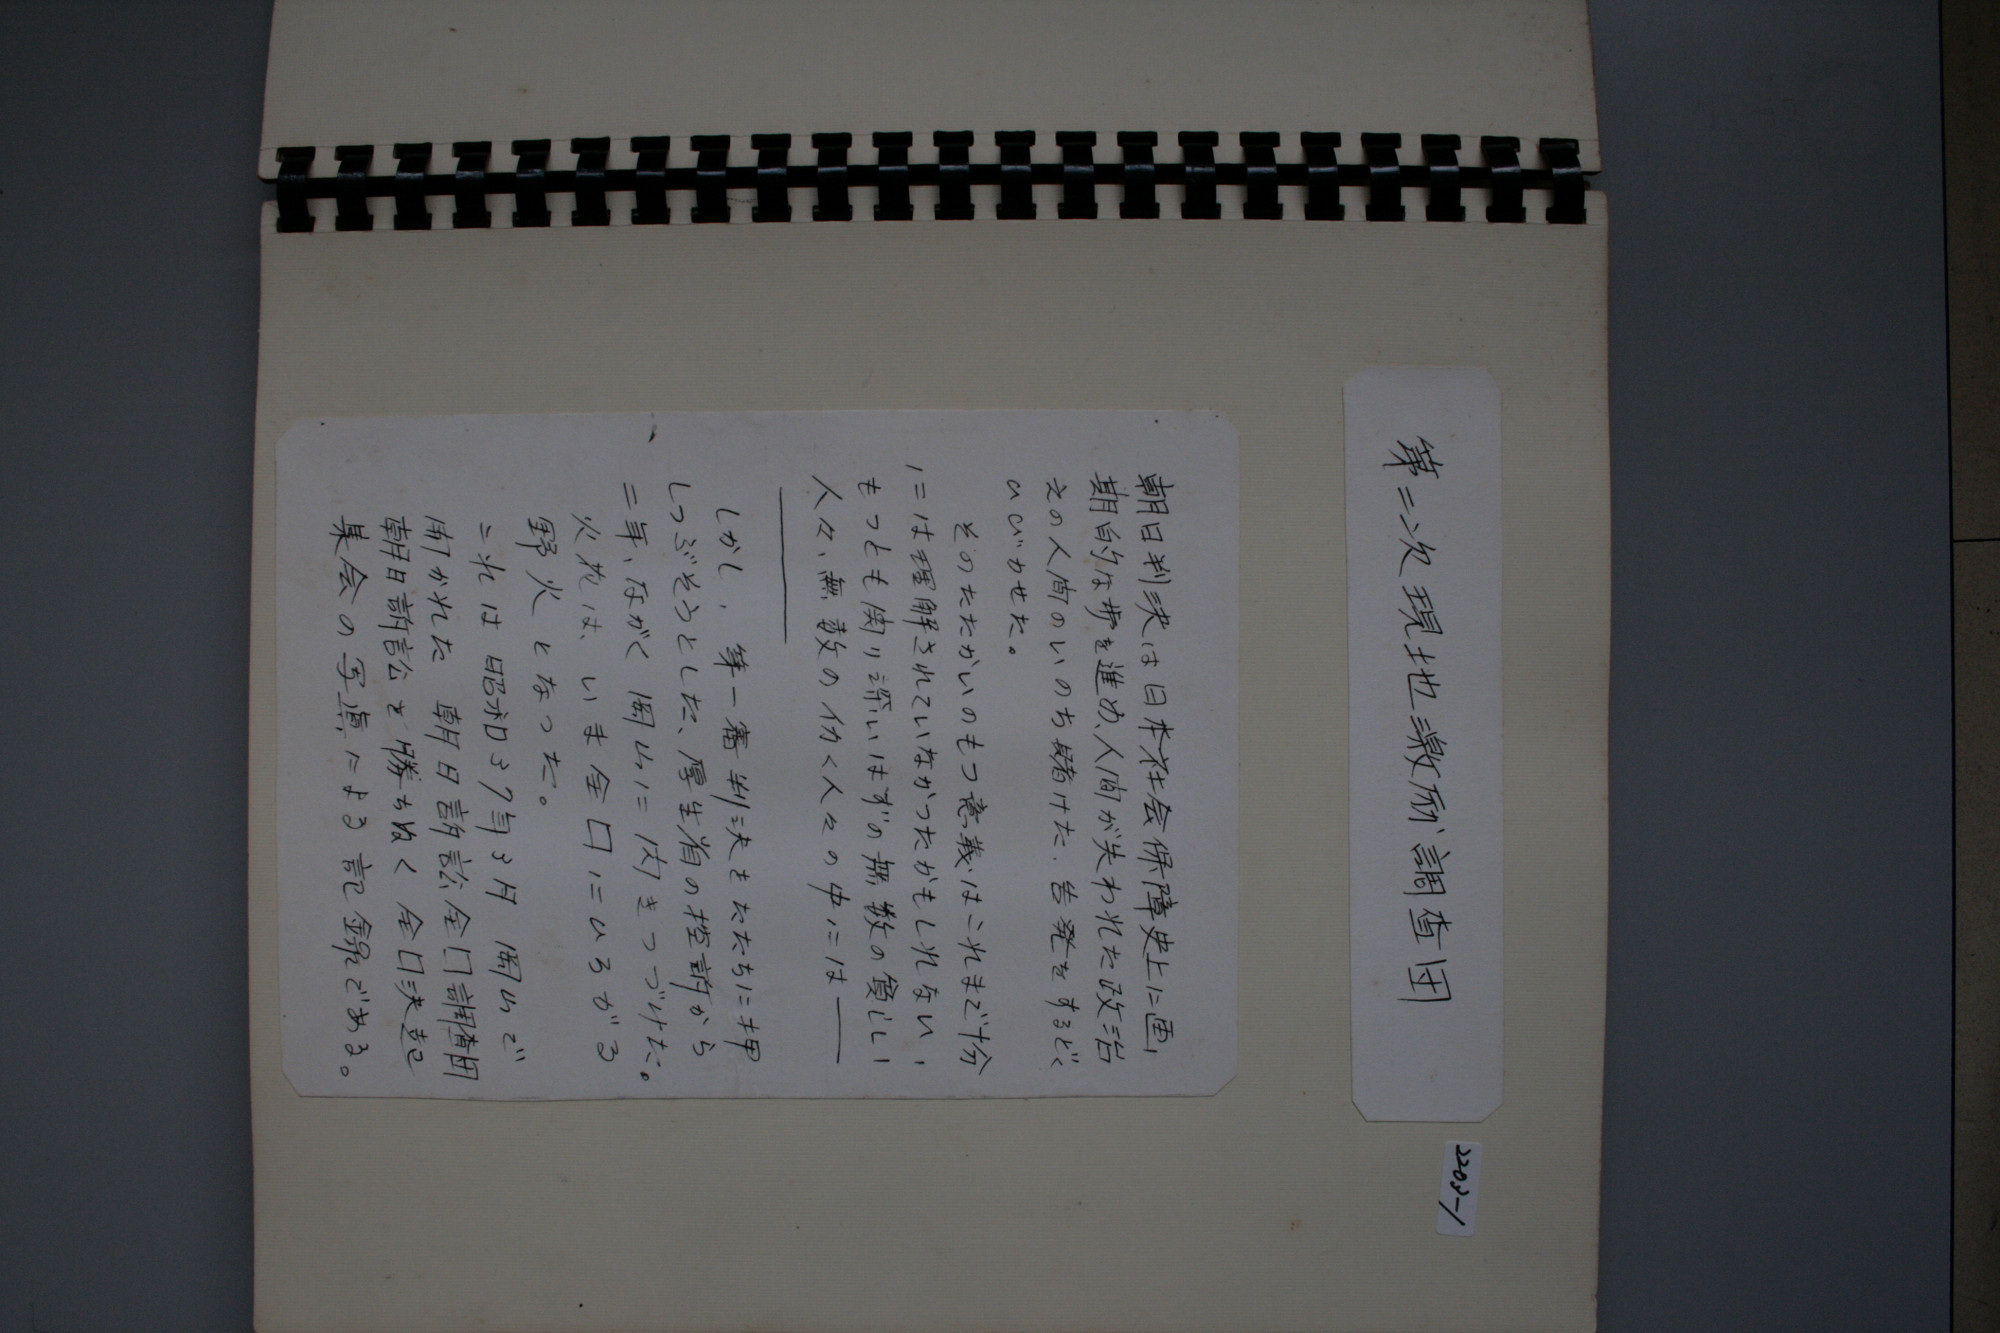 第二次現地激励調査団
2203-1
朝日判決は日本社会保障史上に画
期的な歩を進め、人間が失われた政治
えの人間のいのち賭けた、告発をするどく
ひびかせた。
そのたたかいのもつ意義はこれまで十分
には理解されていなかったかもしれない、
もっとも関り深いはずの無数の貧しい
人々、無数の働く人々の中には——
しかし、第一審判決をただちに押
しつぶそうとした、厚生省の控訴から
二年、ながく岡山に闪きつづけた。
火花は、いま全囗にひろがる
野火となった。
これは昭和37年3月 岡山で
開かれた 朝日訴訟全囗調査団
朝日訴訟を勝ちぬく全囗決起
集会の写真による記録である。